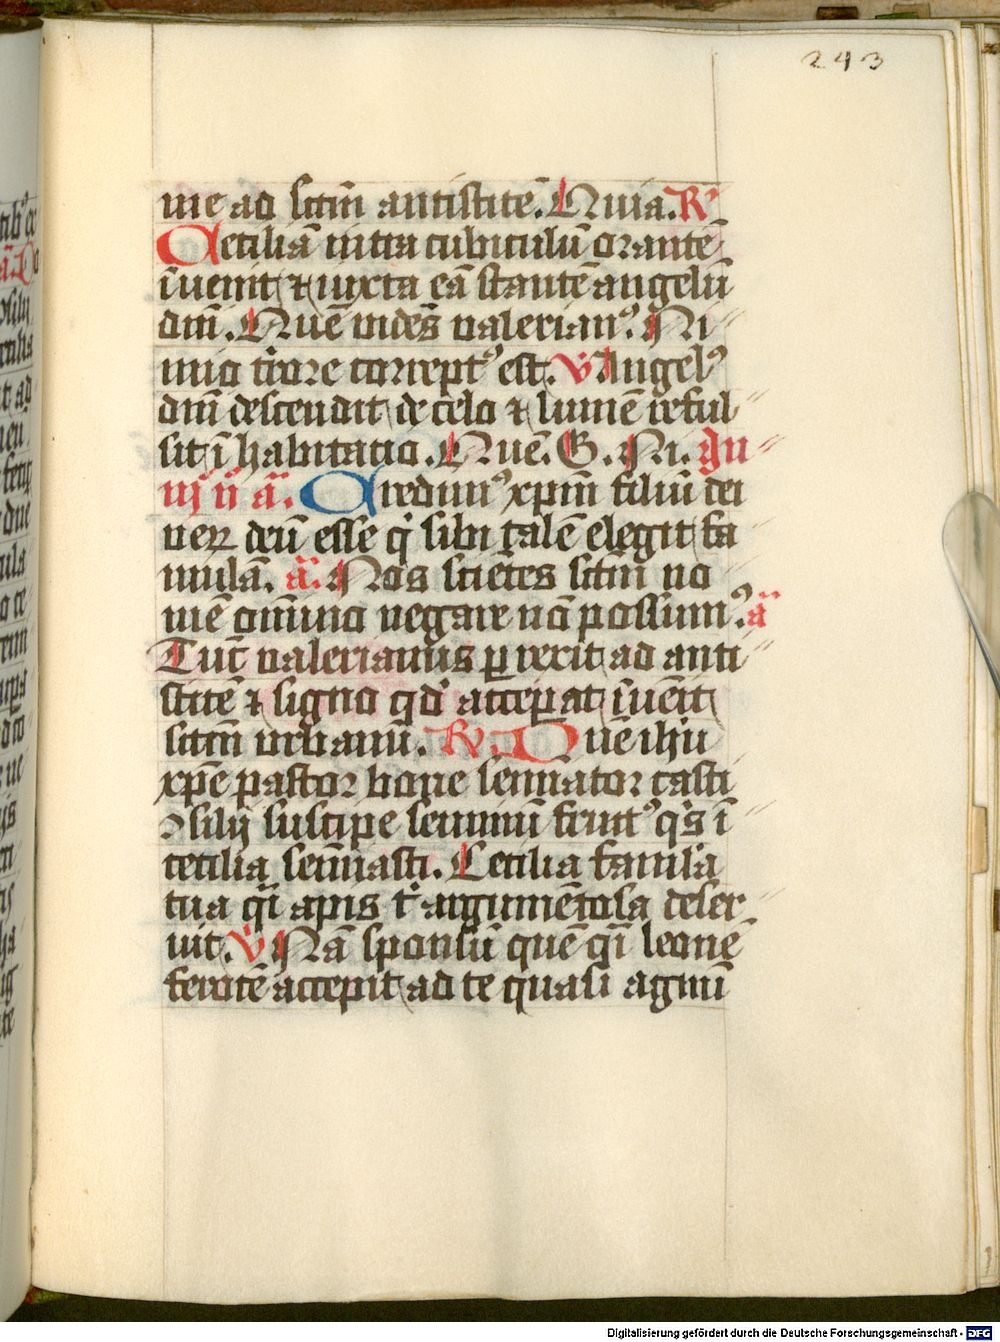 243
me ad sctm̄ antistitē. Quia. R̄
Ceciliā intra cubiculū orantē
īuenit ⁊ iuxta eā stantē angelū
dn̄i. Quē vidēs valerianꝰ. Ni
mio t̄rore correptꝰ est. v̄ Angelꝰ
dn̄i descendit de celo ⁊ lumē reful
sit ī habitatio. Quē. G. Ni. In
iij n̄ ā. Credimꝰ xp̄m filiū dei
veꝝ deū esse q̇ sibi talē elegit fa
mulā. ā. Nos sciētes sctm̄ no
mē om̄ino negare nō possumꝰ. ā
Tūc valerianus ꝑrexit ad anti
stitē ⁊ signo qd̓ acceperat īuēit
sctm̄ vrbanū. R̄. Dūe ihū
xp̄e pastor bone seminator casti
ꝯsilij suscipe seminū fructꝰ q̓s ī
cecilia sem̄iasti. Cecilia famula
tua q̄i apis t̓ argumētosa deser
uit. v̄ Nā sponsū quē q̄i leonē
ferocē accepit ad te quasi agnū
Digitalisierung gefördert durch die Deutsche Forschungsgemeinschaft - DFG